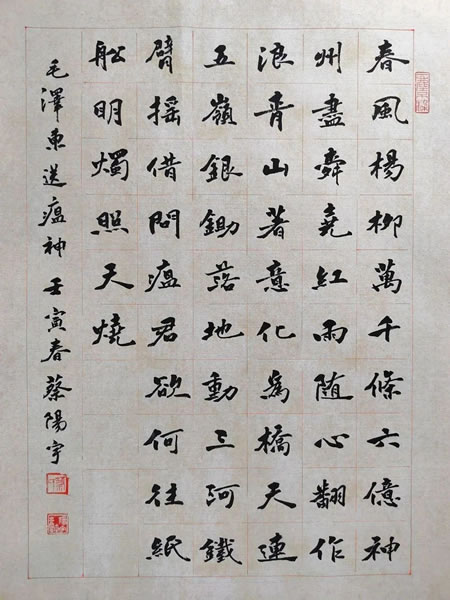 春風楊柳萬千條六億神
州盡舜堯紅雨随心翻作
浪青山著意化為橋天連
五嶺銀鋤落地動三河鐵
臂摇借問瘟君欲何往紙
舩明燭照天燒
毛澤東送瘟神壬寅春蔡陽宇